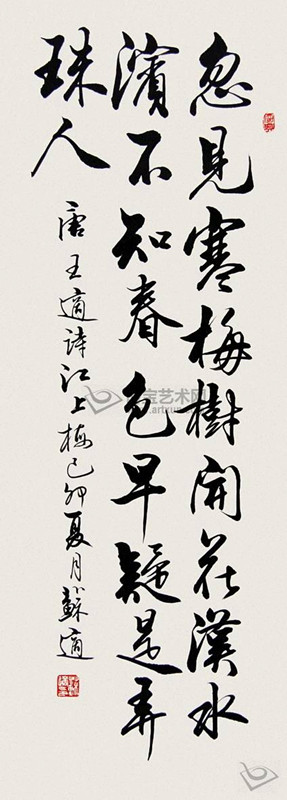 忽見寒梅樹開花漢水
濱不知春色早疑是弄
珠人
唐王適詩江上梅己卯夏月蘇適